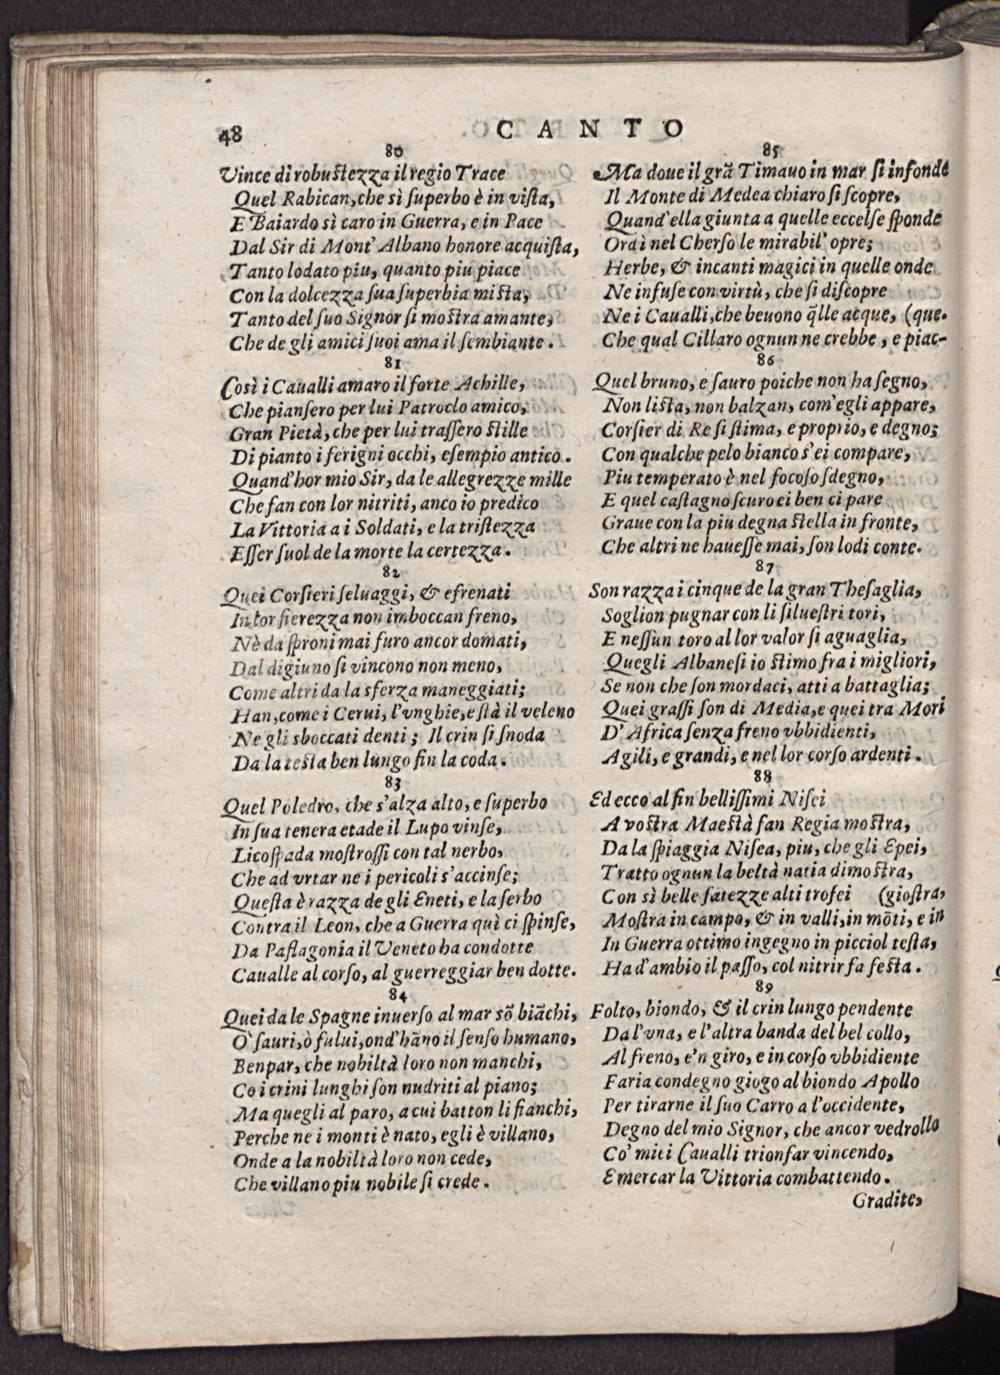 48
CANTO
80
Vince di robuſtezza il regio Trace
Quel Rabican, che sì ſuperbo è in viſta,
E Baiardo sì caro in Guerra, e in Pace
Dal Sir di Mont' Albano honore acquiſta,
Tanto lodato piu, quanto piu piace
Con la dolcezza ſua ſuperbia miſta,
Tanto del ſuo Signor ſi moſtra amante,
Che de gli amici ſuoi ama il ſembiante.
81
Così i Caualli amaro il forte Achille,
Che pianſero per lui Patroclo amico,
Gran Pietà, che per lui traſſero ſtille
Di pianto i ferigni occhi, eſempio antico.
Quand'hor mio Sir, da le allegrezze mille
Che fan con lor nitriti, anco io predico
La Vittoria a i Soldati, e la triſtezza
Eſſer ſuol de la morte la certezza.
82
Quei Corſieri ſeluaggi, & efrenati
In lor fierezza non imboccan freno,
Nè da ſproni mai furo ancor domati,
Dal digiuno ſi vincono non meno,
Come altri da la sferza maneggiati;
Han, come i Cerui, l'vnghie, e ſtà il veleno
Ne gli sboccati denti; Il crin ſi ſnoda
Da la teſta ben lungo fin la coda.
83
Quel Poledro, che s'alza alto, e ſuperbo
In ſua tenera etade il Lupo vinſe,
Licoſpada moſtroſſi con tal nerbo,
Che ad vrtar ne i pericoli s'accinſe;
Queſta è razza de gli Eneti, e la ſerbo
Contra il Leon, che a Guerra quì ci ſpinſe,
Da Paflagonia il Veneto ha condotte
Caualle al corſo, al guerreggiar ben dotte.
84
Quei da le Spagne inuerſo al mar sõ biãchi,
O' ſauri, ò fului, ond'hãno il ſenſo humano,
Benpar, che nobiltà loro non manchi,
Co i crini lunghi ſon nudriti al piano;
Ma quegli al paro, a cui batton li fianchi,
Perche ne i monti è nato, egli è villano,
Onde a la nobiltà loro non cede,
Che villano piu nobile ſi crede.
85
Ma doue il grã Timauo in mar ſi infonde
Il Monte di Medea chiaro ſi ſcopre,
Quand'ella giunta a quelle eccelſe ſponde
Ordì nel Cherſo le mirabil' opre;
Herbe, & incanti magici in quelle onde
Ne infuſe con virtù, che ſi diſcopre
Ne i Caualli, che beuono q̃lle acque, (que.
Che qual Cillaro ognun ne crebbe, e piac-
86
Quel bruno, e ſauro poiche non ha ſegno,
Non liſta, non balzan, com'egli appare,
Corſier di Re ſi ſtima, e proprio, e degno;
Con qualche pelo bianco s'ei compare,
Piu temperato è nel focoſo ſdegno,
E quel caſtagno ſcuro ei ben ci pare
Graue con la piu degna ſtella in fronte,
Che altri ne haueſſe mai, ſon lodi conte.
87
Son razza i cinque de la gran Theſaglia,
Soglion pugnar con li ſilueſtri tori,
E neſſun toro al lor valor ſi aguaglia,
Quegli Albaneſi io ſtimo fra i migliori,
Se non che ſon mordaci, atti a battaglia;
Quei graſſi ſon di Media, e quei tra Mori
D' Africa ſenza freno vbbidienti,
Agili, e grandi, e nel lor corſo ardenti.
88
Ed ecco al fin belliſſimi Niſei
A voſtra Maeſtà fan Regia moſtra,
Da la ſpiaggia Niſea, piu, che gli Epei,
Tratto ognun la beltà natia dimoſtra,
Con sì belle fatezze alti trofei (gioſtra,
Moſtra in campo, & in valli, in mõti, e in
In Guerra ottimo ingegno in picciol teſta,
Ha d'ambio il paſſo, col nitrir fa feſta.
89
Folto, biondo, & il crin lungo pendente
Da l'vna, e l'altra banda del bel collo,
Al freno, e'n giro, e in corſo vbbidiente
Faria condegno giogo al biondo Apollo
Per tirarne il ſuo Carro a l'occidente,
Degno del mio Signor, che ancor vedrollo
Co' miei Caualli trionfar vincendo,
E mercar la Vittoria combattendo.
Gradite,